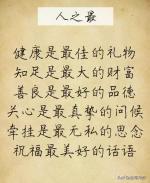 人之最
健康是最佳的礼物
知足是最大的财富
善良是最好的品德
关心是最真挚的问候
牵挂是最无私的思念
祝福最美好的话语